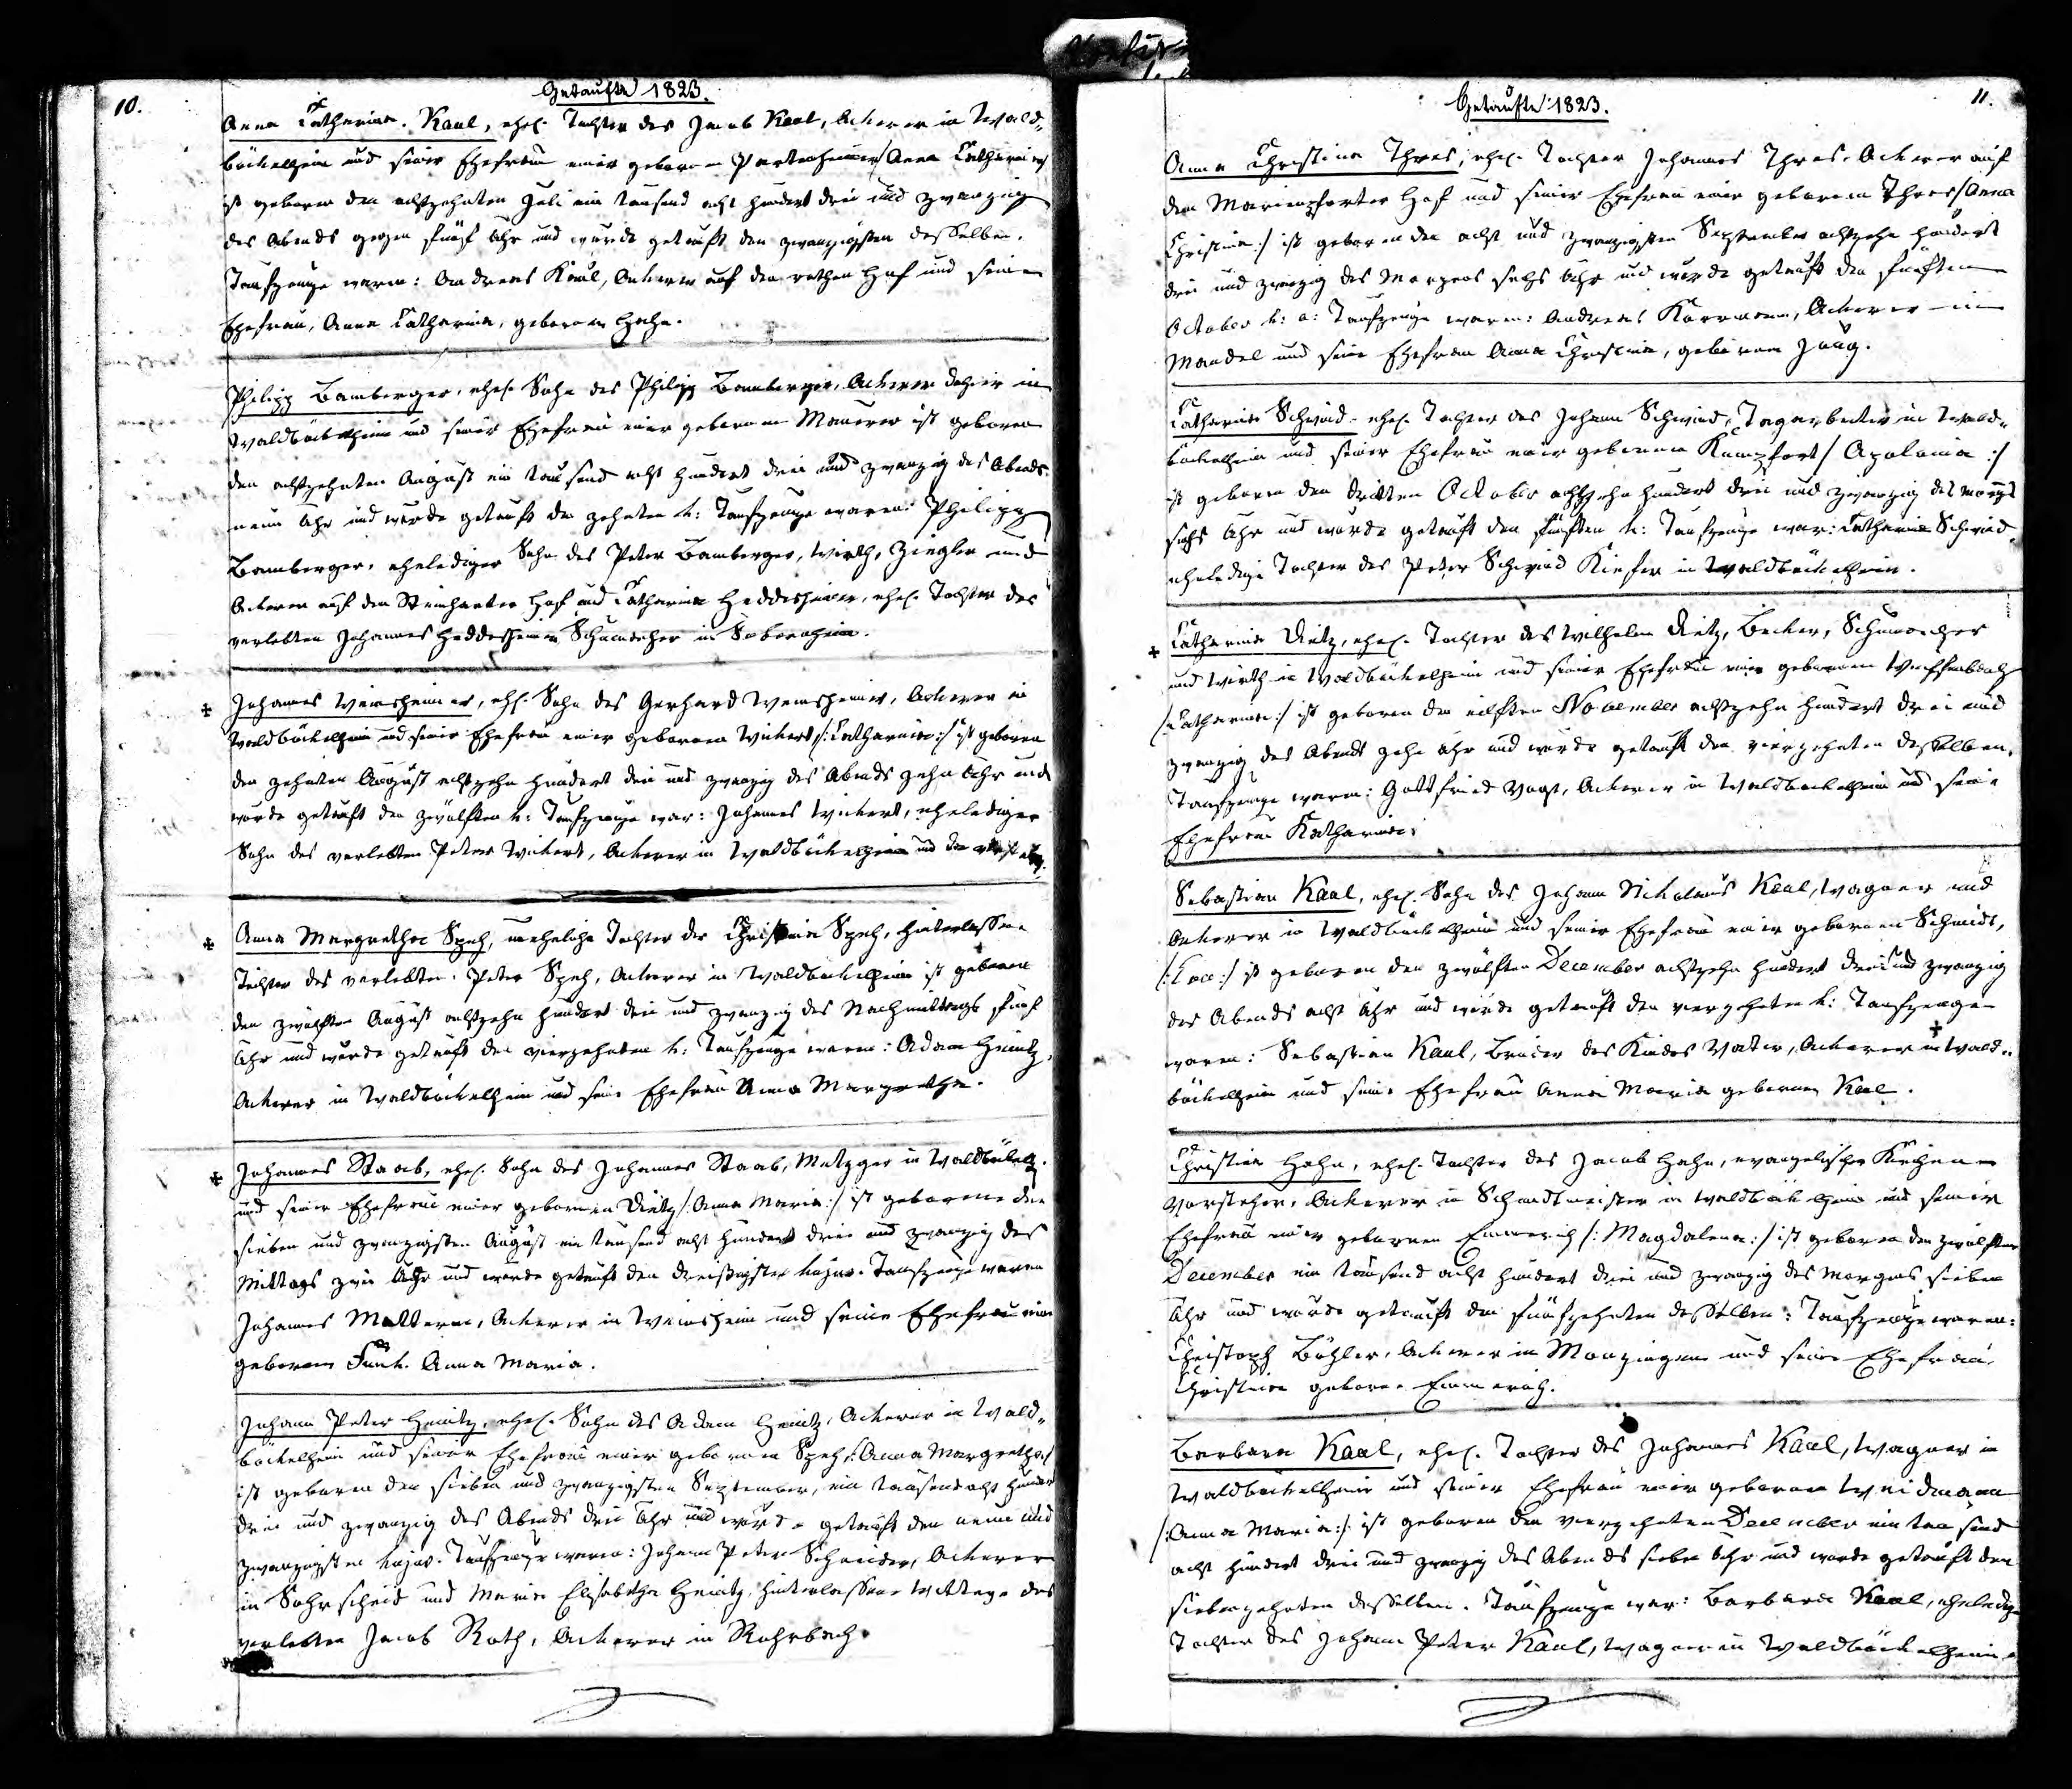 10.
Getaufte 1823.
Anna Catharina Kaul, ehel. Tochter des Jacob Kaul, Ackerer in Wald-
böckelheim und seiner Ehefrau einer gebornen Partenheimer /Anna Catharina/
ist geboren den achtzehnten Juli ein tausend acht hundert drei und zwanzig
des Abends gegen fünf Uhr und wurde getauft den zwanzigsten desselben.
Taufzeuge waren: Andreas Kaul, Ackerer auf dem rothen Hof und seine
Ehefrau, Anna Catharina, geborene Hahn.
Philipp Bamberger, ehel. Sohn des Philipp Bamberger, Ackerer dahier in
Waldböckelheim und seiner Ehefrau einer gebornen Maurer ist geboren
den achtzehnten August ein tausend acht hundert drei und zwanzig des Abends
neun Uhr und wurde getauft den zehnten h: Taufzeuge waren Philipp
Bamberger, ehelediger Sohn des Peter Bamberger, Wirth, Ziegler und
Ackerer auf dem Steinharter Hof und Catharina Heddesheimer, ehel. Tochter des
verlebten Johannes Heddesheimer Schumacher in Sobernheim.
Johannes Weinsheimer, ehl. Sohn des Gerhard Weinsheimer, Ackerer in
Waldböckelheim und seiner Ehefrau einer gebornen Wickert /:Catharina:/ ist geboren
den zehnten August achtzehn hundert drei und zwanzig des Abends zehn Uhr und
wurde getauft den zwölften h: Taufzeuge war: Johannes Wickert, ehelediger
Sohn des verlebten Peter Wickert, Ackerer in Waldböckelheim und der
Anna Margretha Speh, uneheliche Tochter der Christina Speh, hinterlassene
Tochter des verlebten Peter Speh, Ackerer in Waldböckelheim ist geboren
den zwölften August achtzehn hundert drei und zwanzig des Nachmittags fünf
Uhr und wurde getauft den vierzehnten h: Taufzeuge waren: Adam Heintz,
Ackerer in Waldböckelheim und seine Ehefrau Anna Margretha.
Johannes Staab, ehel. Sohn des Johannes Staab, Metzger in Waldböckelh.
und seiner Ehefrau einer gebornen Dietz /:Anna Maria:/ ist geboren den
sieben und zwanzigsten August ein tausend acht hundert drei und zwanzig des
Mittags zwei Uhr und wurde getauft den dreißigsten hujus. Taufzeuge waren
Johannes Mattern, Ackerer in Weinsheim und seine Ehefrau eine
geborene Funk. Anna Maria.
Johann Peter Heintz, ehel. Sohn des Adam Heintz, Ackerer in Wald-
böckelheim und seiner Ehefrau einer gebornen Speh /:Anna Margretha/
ist geboren den sieben und zwanzigsten September, ein tausend acht hundert
drei und zwanzig des Abends drei Uhr und wurde getauft den neun und
zwanzigsten hujus. Taufzeuge waren: Johann Peter Schneider, Ackerer
in Sohrscheid und Maria Elisabetha Heintz, hinterlassene Wittwe des
verlebten Jacob Roth, Ackerer in Rohrbach.
11.
Getaufte 1823.
Anna Christina Thres, ehel. Tochter Johannes Thres, Ackerer auf
dem Marienpforter Hof und seiner Ehefrau einer gebornen Thres /Anna
Christina:/ ist geboren den acht und zwanzigsten September achtzehn hundert
drei und zwanzig des Morgens sechs Uhr und wurde getauft den fünften
October h: a: Taufzeuge waren: Andreas Karrmann, Ackerer in
Mandel und seine Ehefrau Anna Christina, geborene Jung.
Catharina Schmid, ehel. Tochter des Johann Schmid, Tagarbeiter in Wald-
böckelheim und seiner Ehefrau einer gebornen Kumpfort / Apolonia :/
ist geboren den dritten October achtzehn hundert drei und zwanzig des Morgens
sechs Uhr und wurde getauft den fünften h: Taufzeuge war: Catharina Schmid,
eheledige Tochter des Peter Schmid Kiefer in Waldböckelheim.
Catharina Dietz, ehel. Tochter des Wilhelm Dietz, Becker, Schumacher
und Wirth in Waldböckelheim und seiner Ehefrau einer gebornen Weissenbach
/Catharina:/ ist geboren den eilften November achtzehn hundert drei und
zwanzig des Abends zehn Uhr und wurde getauft den vierzehnten desselben.
Taufzeuge waren: Gottfried Vogt, Ackerer in Waldböckelheim und seine
Ehefrau Katharina.
Sebastian Kaul, ehel. Sohn des Johann Nicholaus Kaul, Wagner und
Ackerer in Waldböckelheim und seiner Ehefrau einer gebornen Schmidt,
/:Eva:/ ist geboren den zwölften December achtzehn hundert drei und zwanzig
des Abends acht Uhr und wurde getauft den vierzehnten h: Taufzeuge
waren: Sebastian Kaul, Bruder des Kindes Vater, Ackerer in Wald-
böckelheim und seine Ehefrau Anna Maria geborene Kaul.
Christina Hahn, ehel. Tochter des Jacob Hahn, evangelischer Kirchen
Vorsteher, Ackerer u Schmidtmeister in Waldböckelheim und seiner
Ehefrau einer gebornen Emmerich /:Magdalena:/ ist geboren den zwölften
December ein tausend acht hundert drei und zwanzig des Morgens sieben
Uhr und wurde getauft den fünfzehnten desselben: Taufzeuge waren:
Christoph Böhler, Ackerer in Monzingen und seine Ehefrau,
Christina geborene Emmerich.
Barbara Kaul, ehel. Tochter des Johannes Kaul, Wagner in
Waldböckelheim und seiner Ehefrau einer gebornen Weidmann
/:Anna Maria:/ ist geboren den vierzehnten December ein tausend
acht hundert drei und zwanzig des Abends sieben Uhr und wurde getauft den
siebenzehnten desselben. Taufzeuge war: Barbara Kaul, eheledige
Tochter des Johann Peter Kaul, Wagner in Waldböckelheim.